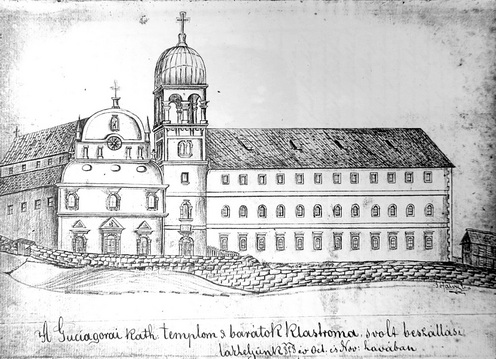 A Guciagorai kath templom s barátok klastroma, s volt beszállási
lakteljünk 878 iv Oct. és Nov: havában.